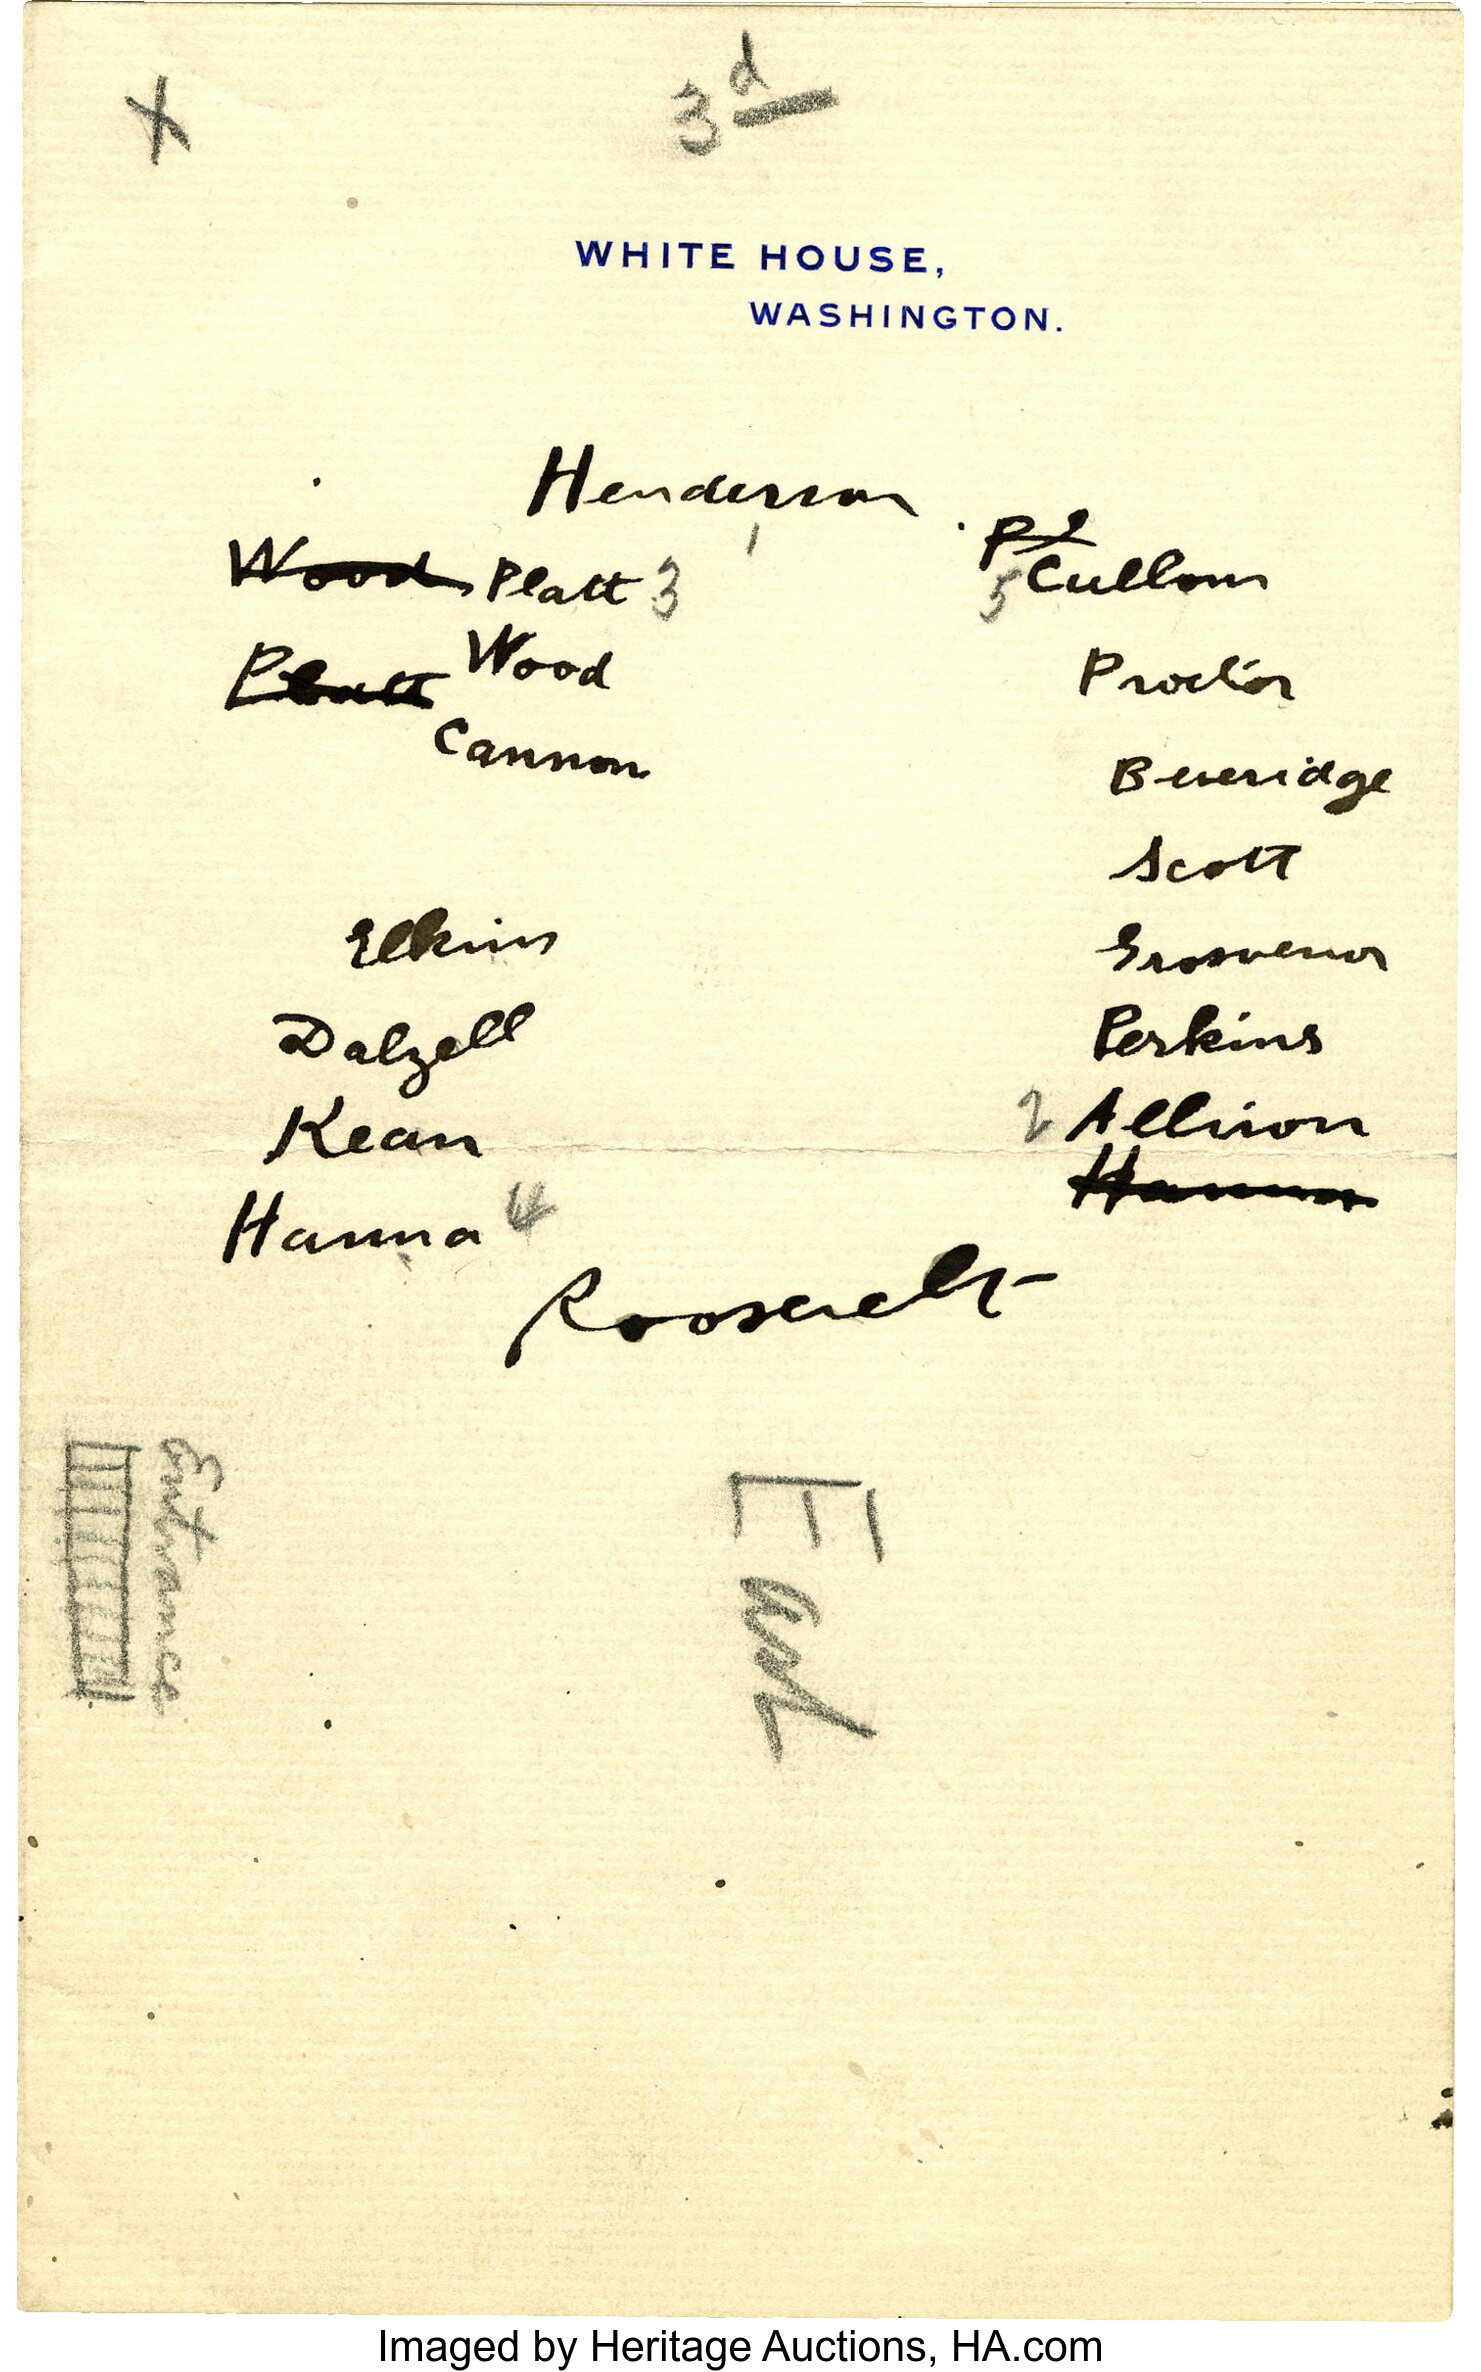 X
3d
WHITE HOUSE,
WASHINGTON.
Henderson
1
Wood Platt 3
Platt Wood
Cannon
Elkins
Dalzell
Kean
Hanna 4
Pl
5 Cullom
Proctor
Beveridge
Scott
Grosvenor
Perkins
2 Allison
Hanna
Roosevelt
Entrance
East
Imaged by Heritage Auctions, HA.com